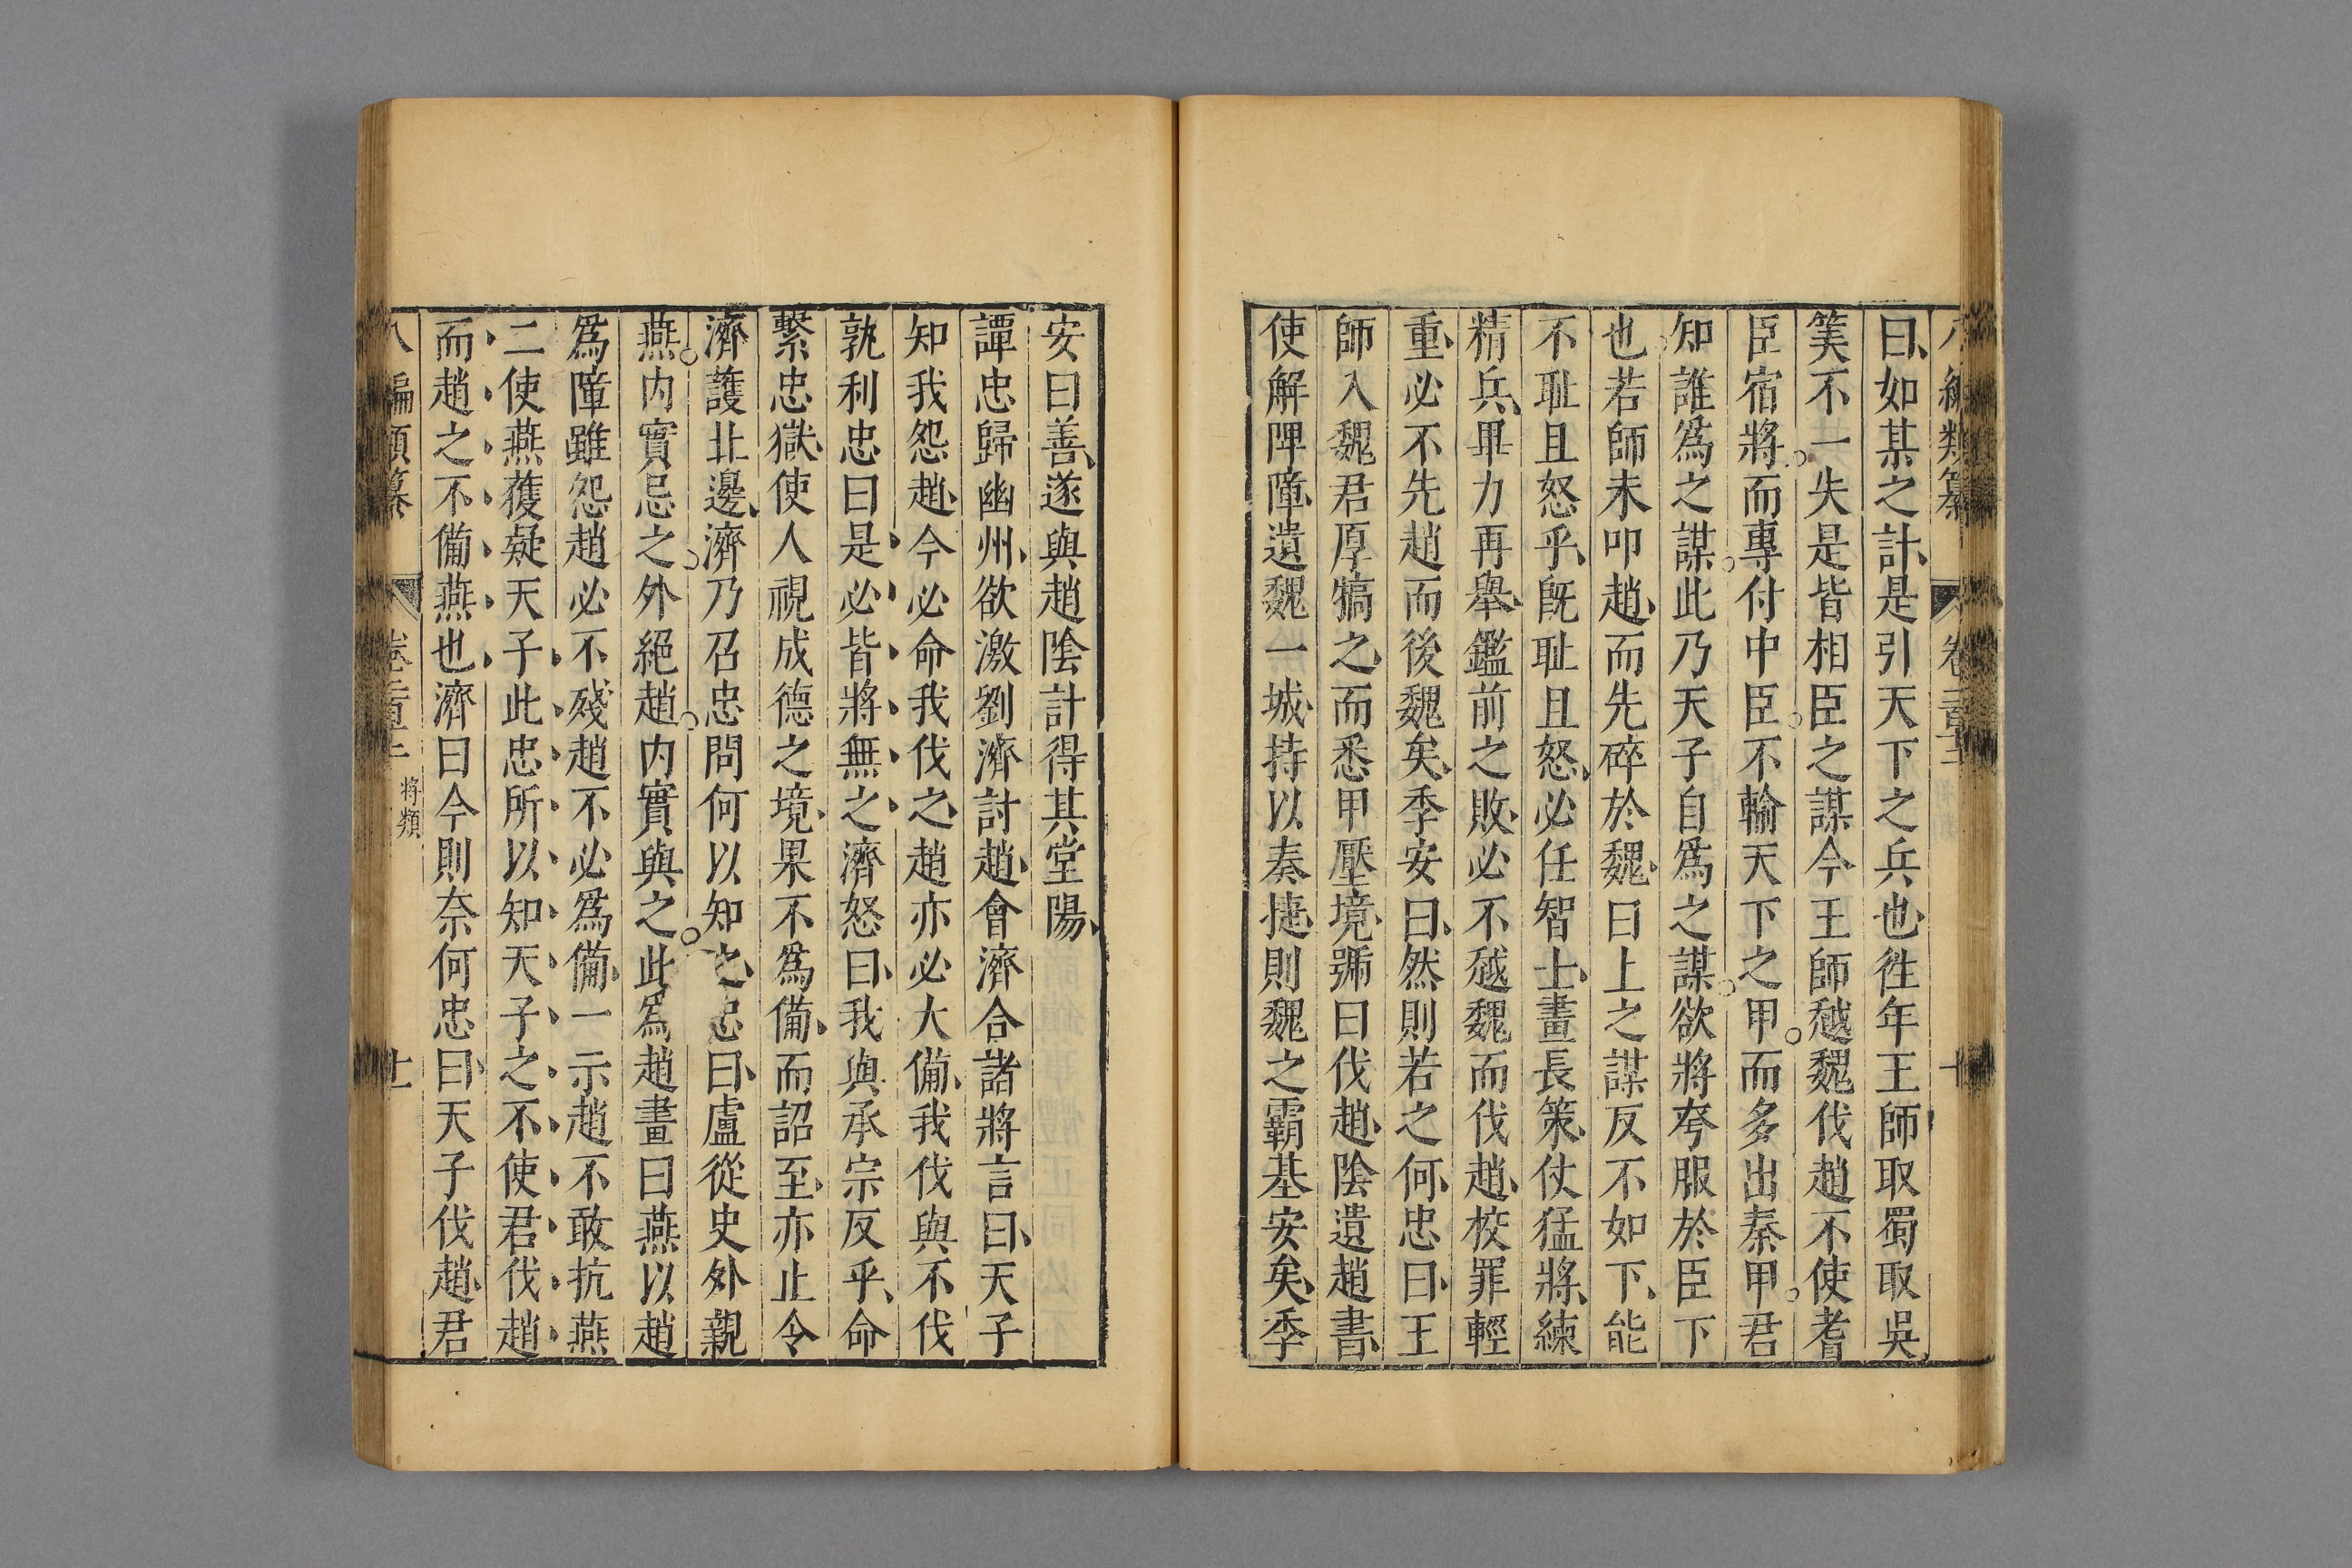 編類纂 卷 十
曰如某之計是引天下之兵也徃年王師取蜀取吳
筭不一失是皆相臣之謀今王師越魏伐趙不使耆
臣宿將而專付中臣不輸天下之甲而多出秦甲君
知誰爲之謀此乃天子自爲之謀欲將夸服於臣下
也若師未叩趙而先碎於魏曰上之謀反不如下能
不耻且怒乎旣耻且怒必任智士畫長策仗猛將練
精兵畢力再舉鑑前之敗必不越魏而伐趙校罪輕
重必不先趙而後魏矣季安曰然則若之何忠曰王
師入魏君厚犒之而悉甲壓境號曰伐趙陰遺趙書
使解陴障遺魏一城持以奏捷則魏之霸基安矣季
安曰善遂與趙陰計得其堂陽
譚忠歸幽州欲激劉濟討趙會濟合諸將言曰天子
知我怨趙今必命我伐之趙亦必大備我伐與不伐
孰利忠曰是必皆將無之濟怒曰我與承宗反乎命
繫忠獄使人視成德之境果不爲備而詔至亦止令
濟護北邊濟乃召忠問何以知之忠曰盧從史外親
燕内實忌之外絕趙内實與之此爲趙畫曰燕以趙
爲障雖怨趙必不殘趙不必爲備一示趙不敢抗燕
二使燕獲疑天子此忠所以知天子之不使君伐趙
而趙之不備燕也濟曰今則奈何忠曰天子伐趙君
八編類纂 卷 將類 十一